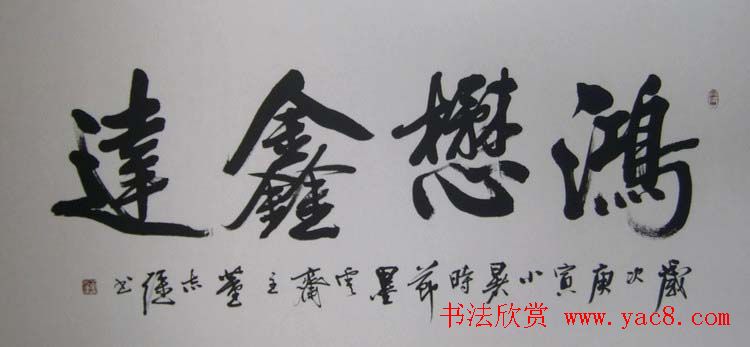 鴻懋鑫達
歲次庚寅小暑時節墨雲齋主董志強书
书法欣赏 www.yac8.com